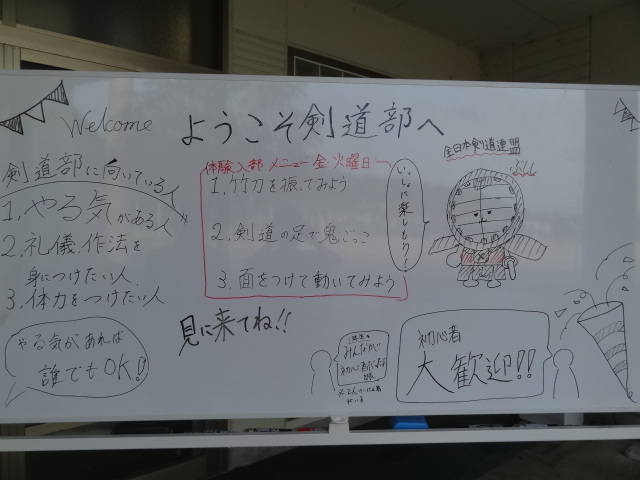 Welcome
ようこそ剣道部へ
剣道部に向いている人
1.やる気がある人
2.礼儀.作法を
身につけたい人
3.体力をつけたい人
やる気があれば
誰でもOK!!
体験入部 メニュー 金 火曜日
1.竹刀を振ってみよう
2.剣道の足で鬼ごっこ
3.面をつけて動いてみよう
いっしょに楽しもう!
全日本剣道連盟
見に来てね!!
みんなが
初心者
大歓迎!!